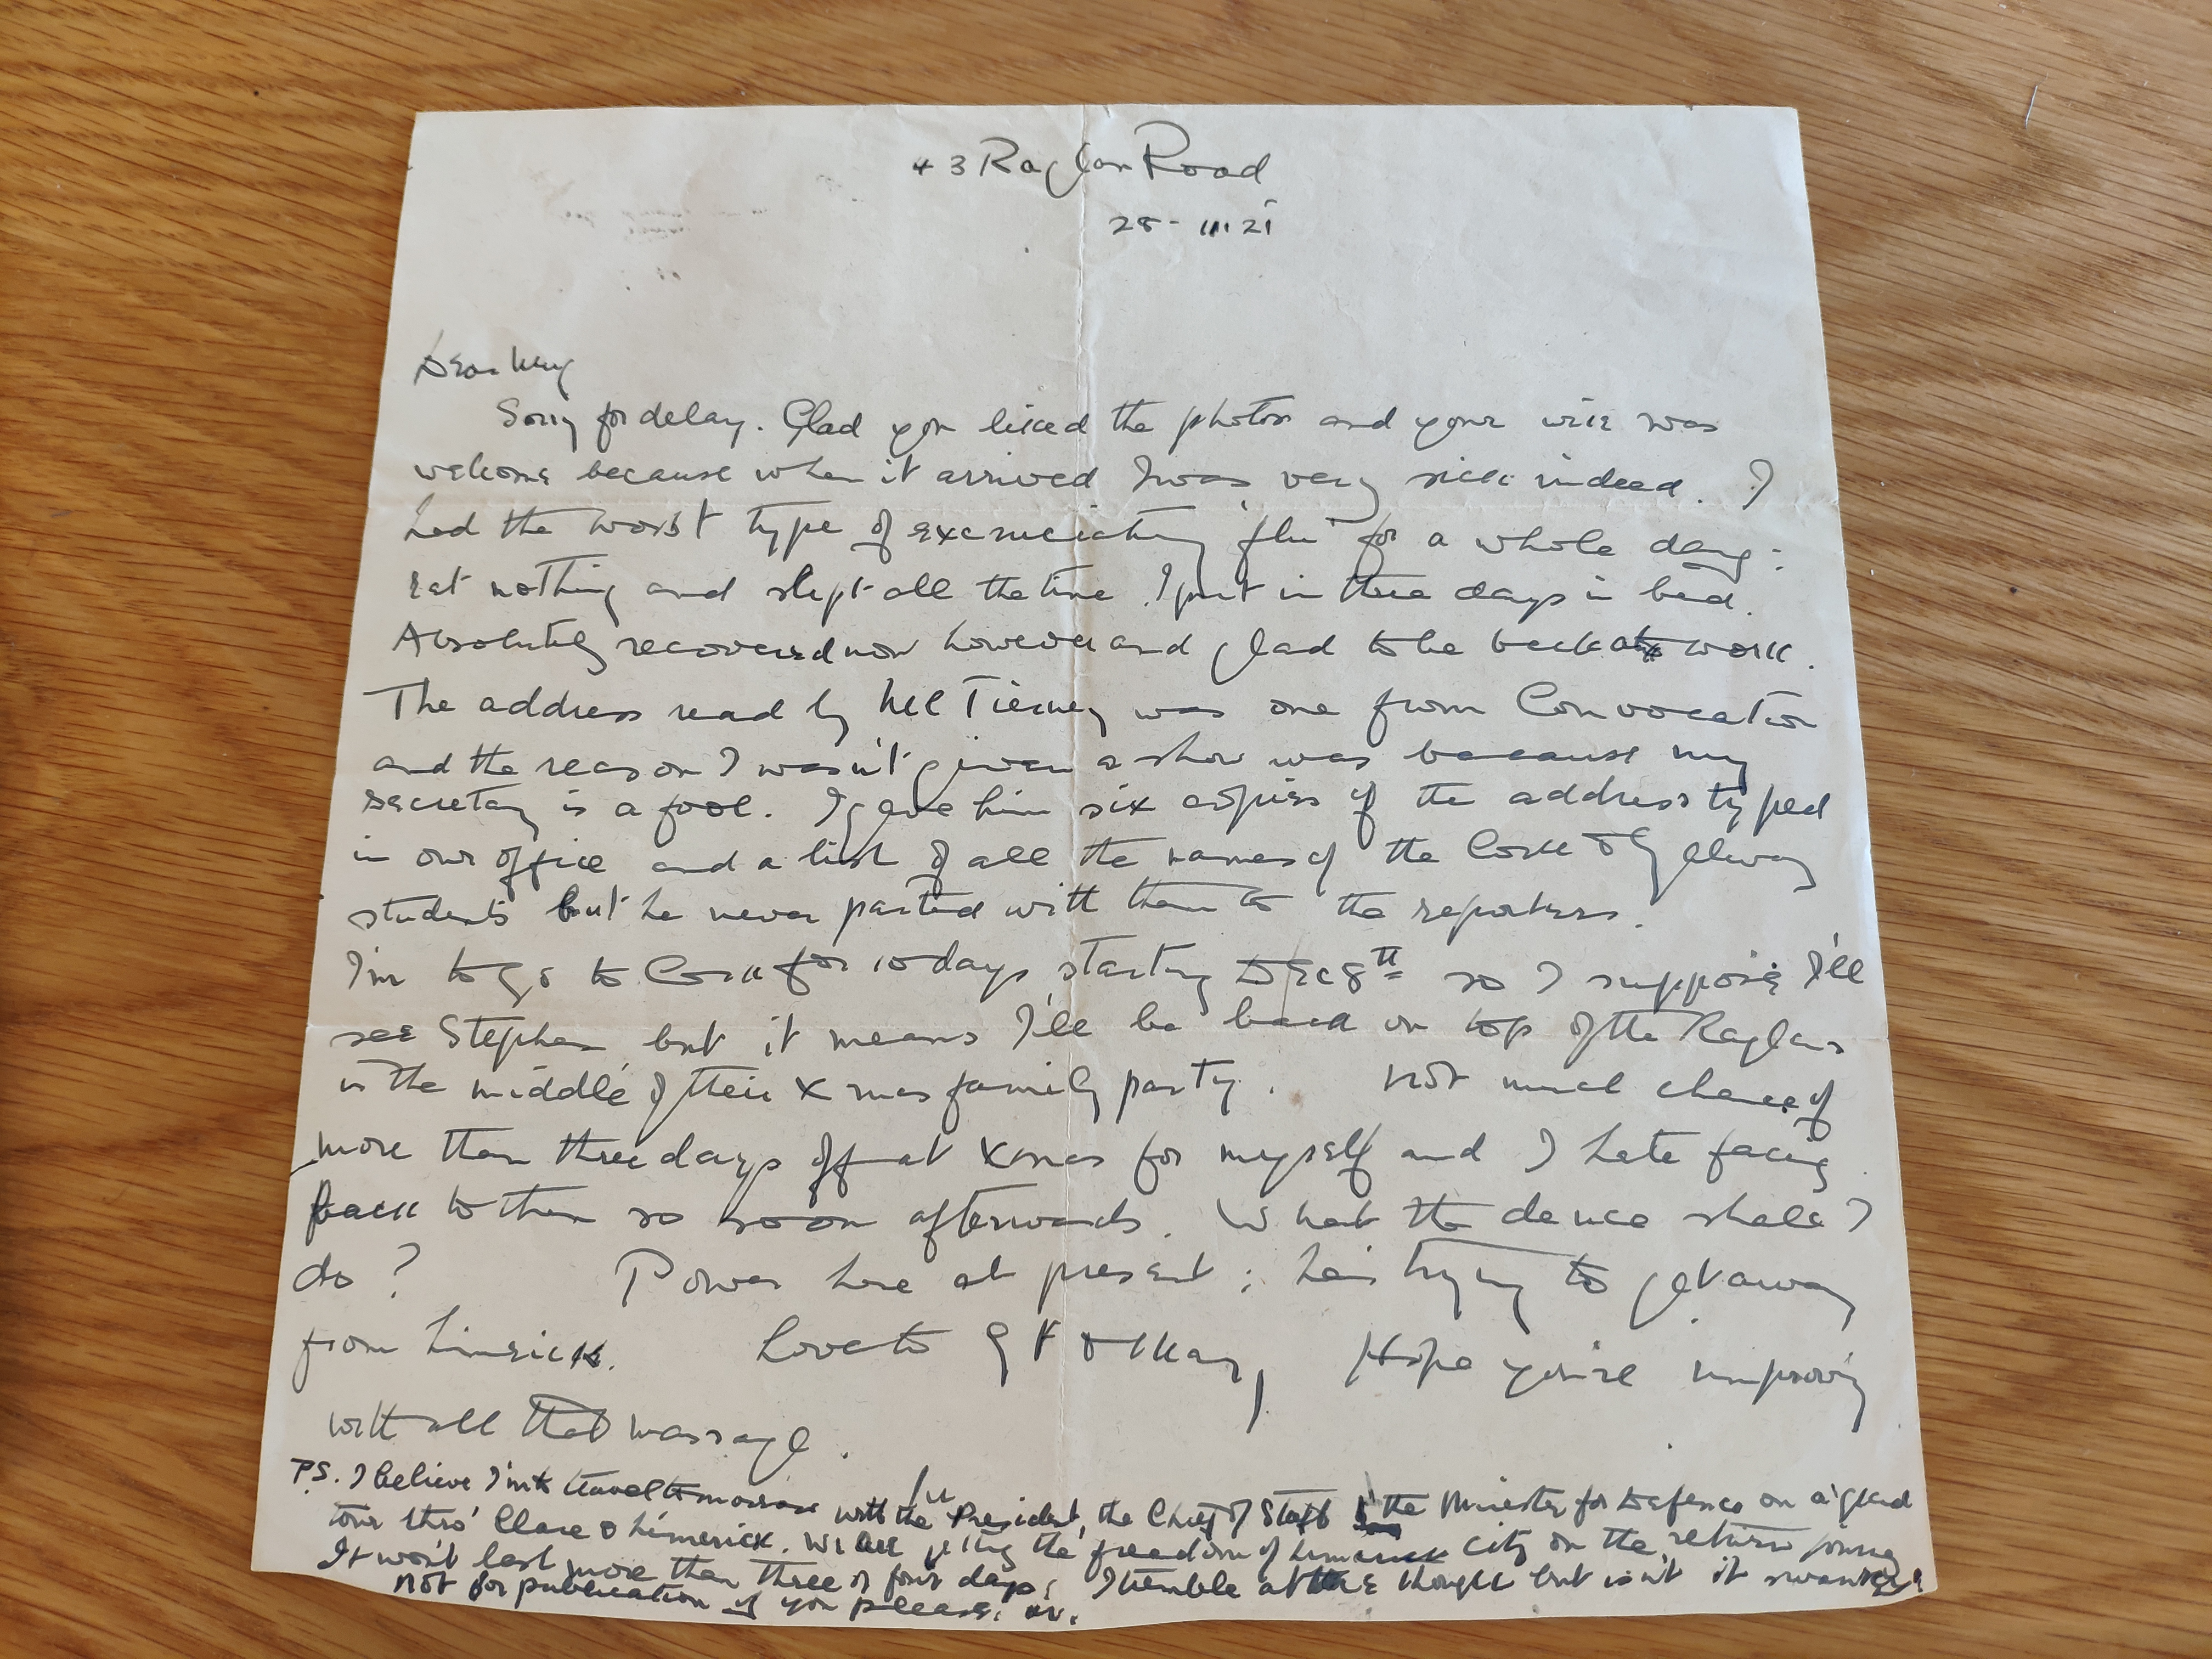 43 Raglan Road
28-11 21
Dear
Sorry for delay. Glad you liked the photos and your wire was
welcome because when it arrived I was very sick indeed. I
had the worst type of excruciating 'flu for a whole day:
eat nothing and slept all the time. I put in three days in bed.
Absolutely recovered now however and glad to be back at work.
The address read by McTierney was one from Convocation
and the reason I wasn't given a show was because my
secretary is a fool. I gave him six copies of the address typed
in our office and a list of all the names of the Cork & Galway
students but he never parted with them to the reporters.
I'm to go to Cork for 10 days starting Dec 8th so I suppose I'll
see Stephen but it means I'll be back on top of the Raglans
in the middle of their Xmas family party. Not much chance of
more than three days off at Xmas for myself and I hate facing
back to them so soon afterwards. What the deuce shall I
do? Power here at present; he's trying to get away
from Limerick. Love to & May, Hope you're improving
with all that massage.
P.S. I believe I'm to travel tomorrow with the President, the Chief of Staff & the Minister for Defence on a 'glad
tour thro' Clare & Limerick. We are getting the freedom of Limerick City on the return journey
It won't last more than three or four days; I tremble at the thought but isn't it swanky!
Not for publication if you please.